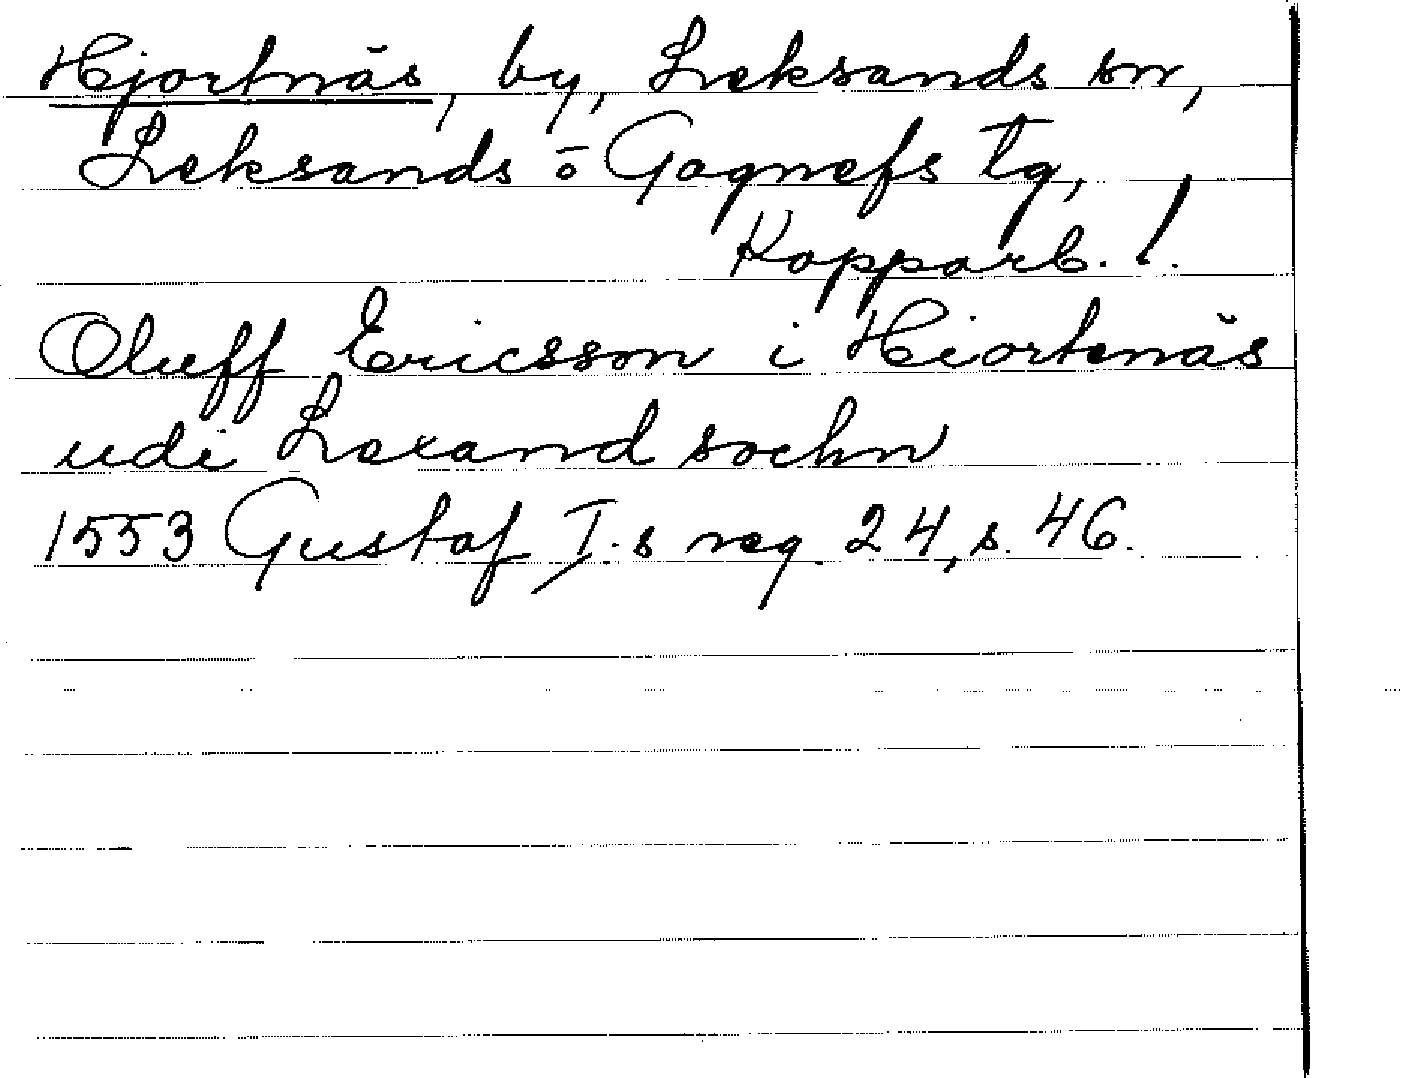 Hjortnäs, by, Leksands sn,
Leksands o Gagnefs tg,
Kopparb. l.
Oluff Ericsson i Hiortenäs
udi Lexand sochn
1553 Gustaf I.s reg. 24, s. 46.